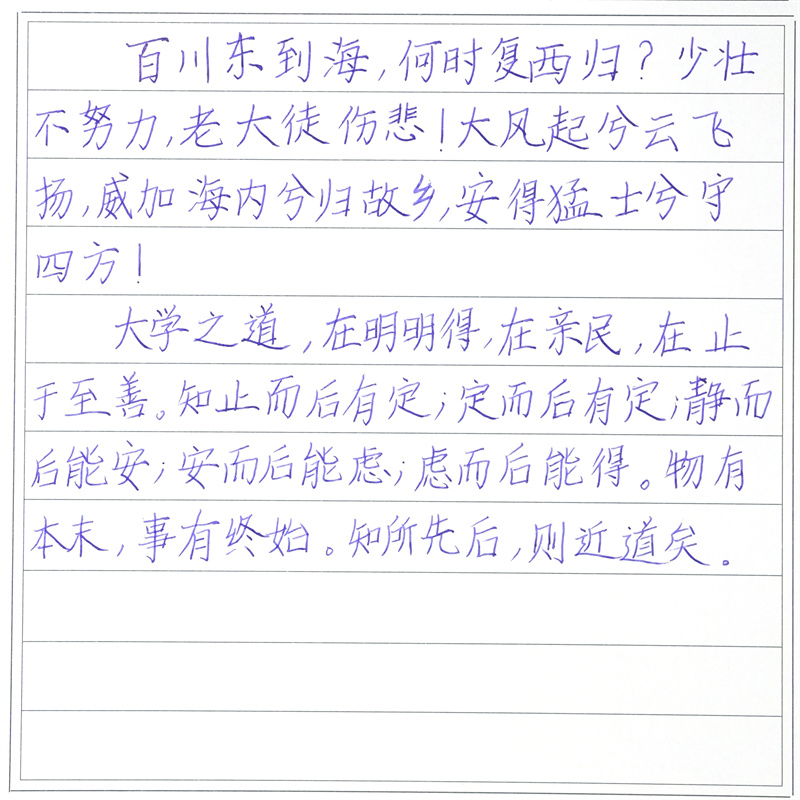 百川东到海,何时复西归?少壮
不努力,老大徒伤悲!大风起兮云飞
扬,威加海内兮归故乡,安得猛士兮守
四方!
大学之道,在明明得,在亲民,在止
于至善。知止而后有定;定而后有定;静而
后能安;安而后能虑;虑而后能得。物有
本末,事有终始。知所先后,则近道矣。